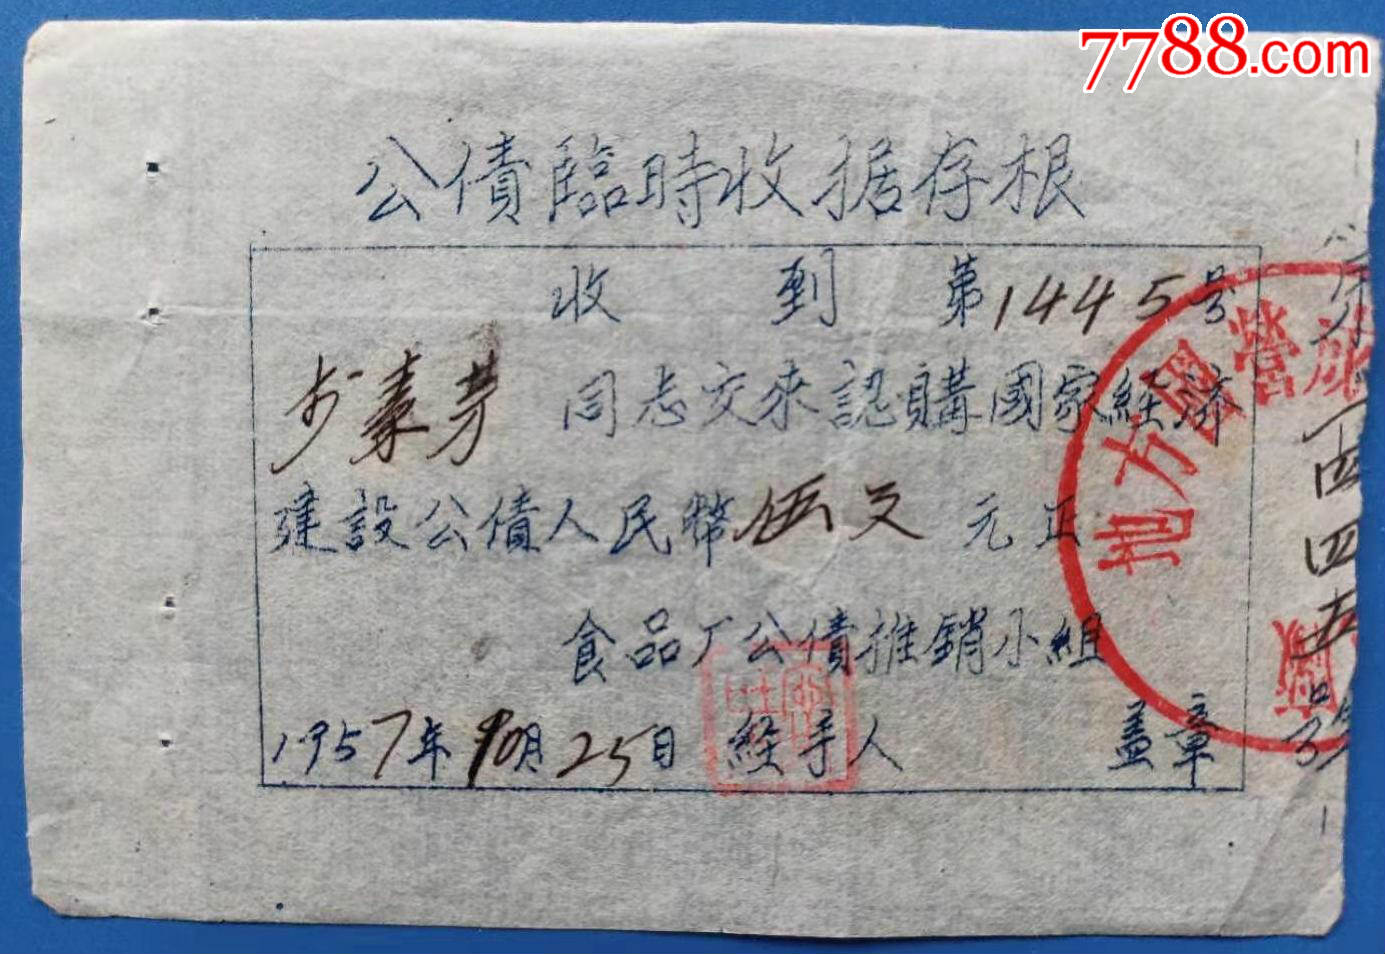 7788.com
公債臨時收据存根
收到 第1445号
素芳 同志交来認購國家經济
建設公債人民幣伍文元正
食品厂公債推銷小組
1957年10月25日 經手人 盖章
地方國營
四四五